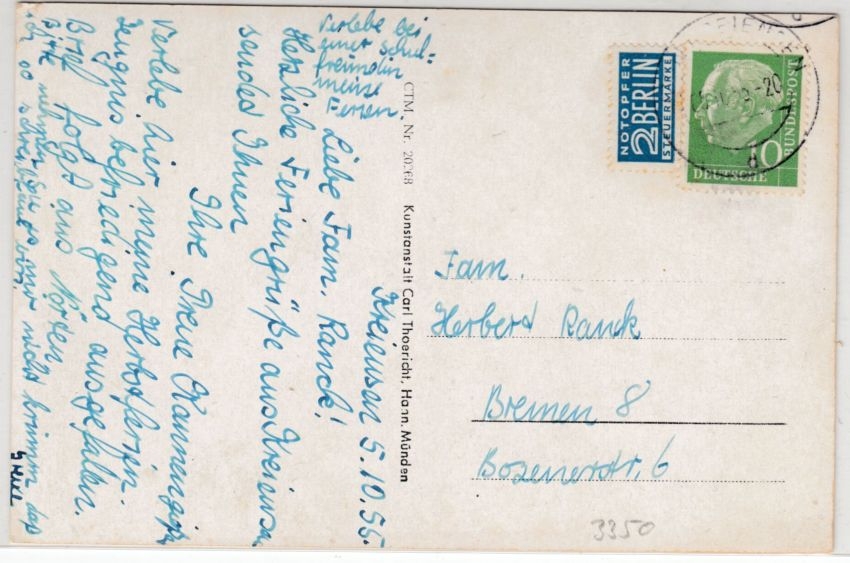 Kreiensen 5.10.55.
Liebe Fam. Ranck!
Herzliche Feriengrüße aus Kreiensen
sendet Ihnen
Ihre Irene
Verlebe hier meine Herbstferien.
Zeugnis befriedigend ausgefallen.
Brief folgt aus Norden
Bitte nehmen Sie es mir nicht krumm daß
ich so
Irene
Verlebe bei
einer Schul=
freundin
meine
Ferien.
CTM. Nr. 20268 Kunstanstalt Carl Thoericht, Hann. Münden
NOTOPFER
2 BERLIN
STEUERMARKE
10
DEUTSCHE
BUNDESPOST
Fam.
Herbert Ranck
Bremen 8
Bozenerstr. 6
3350